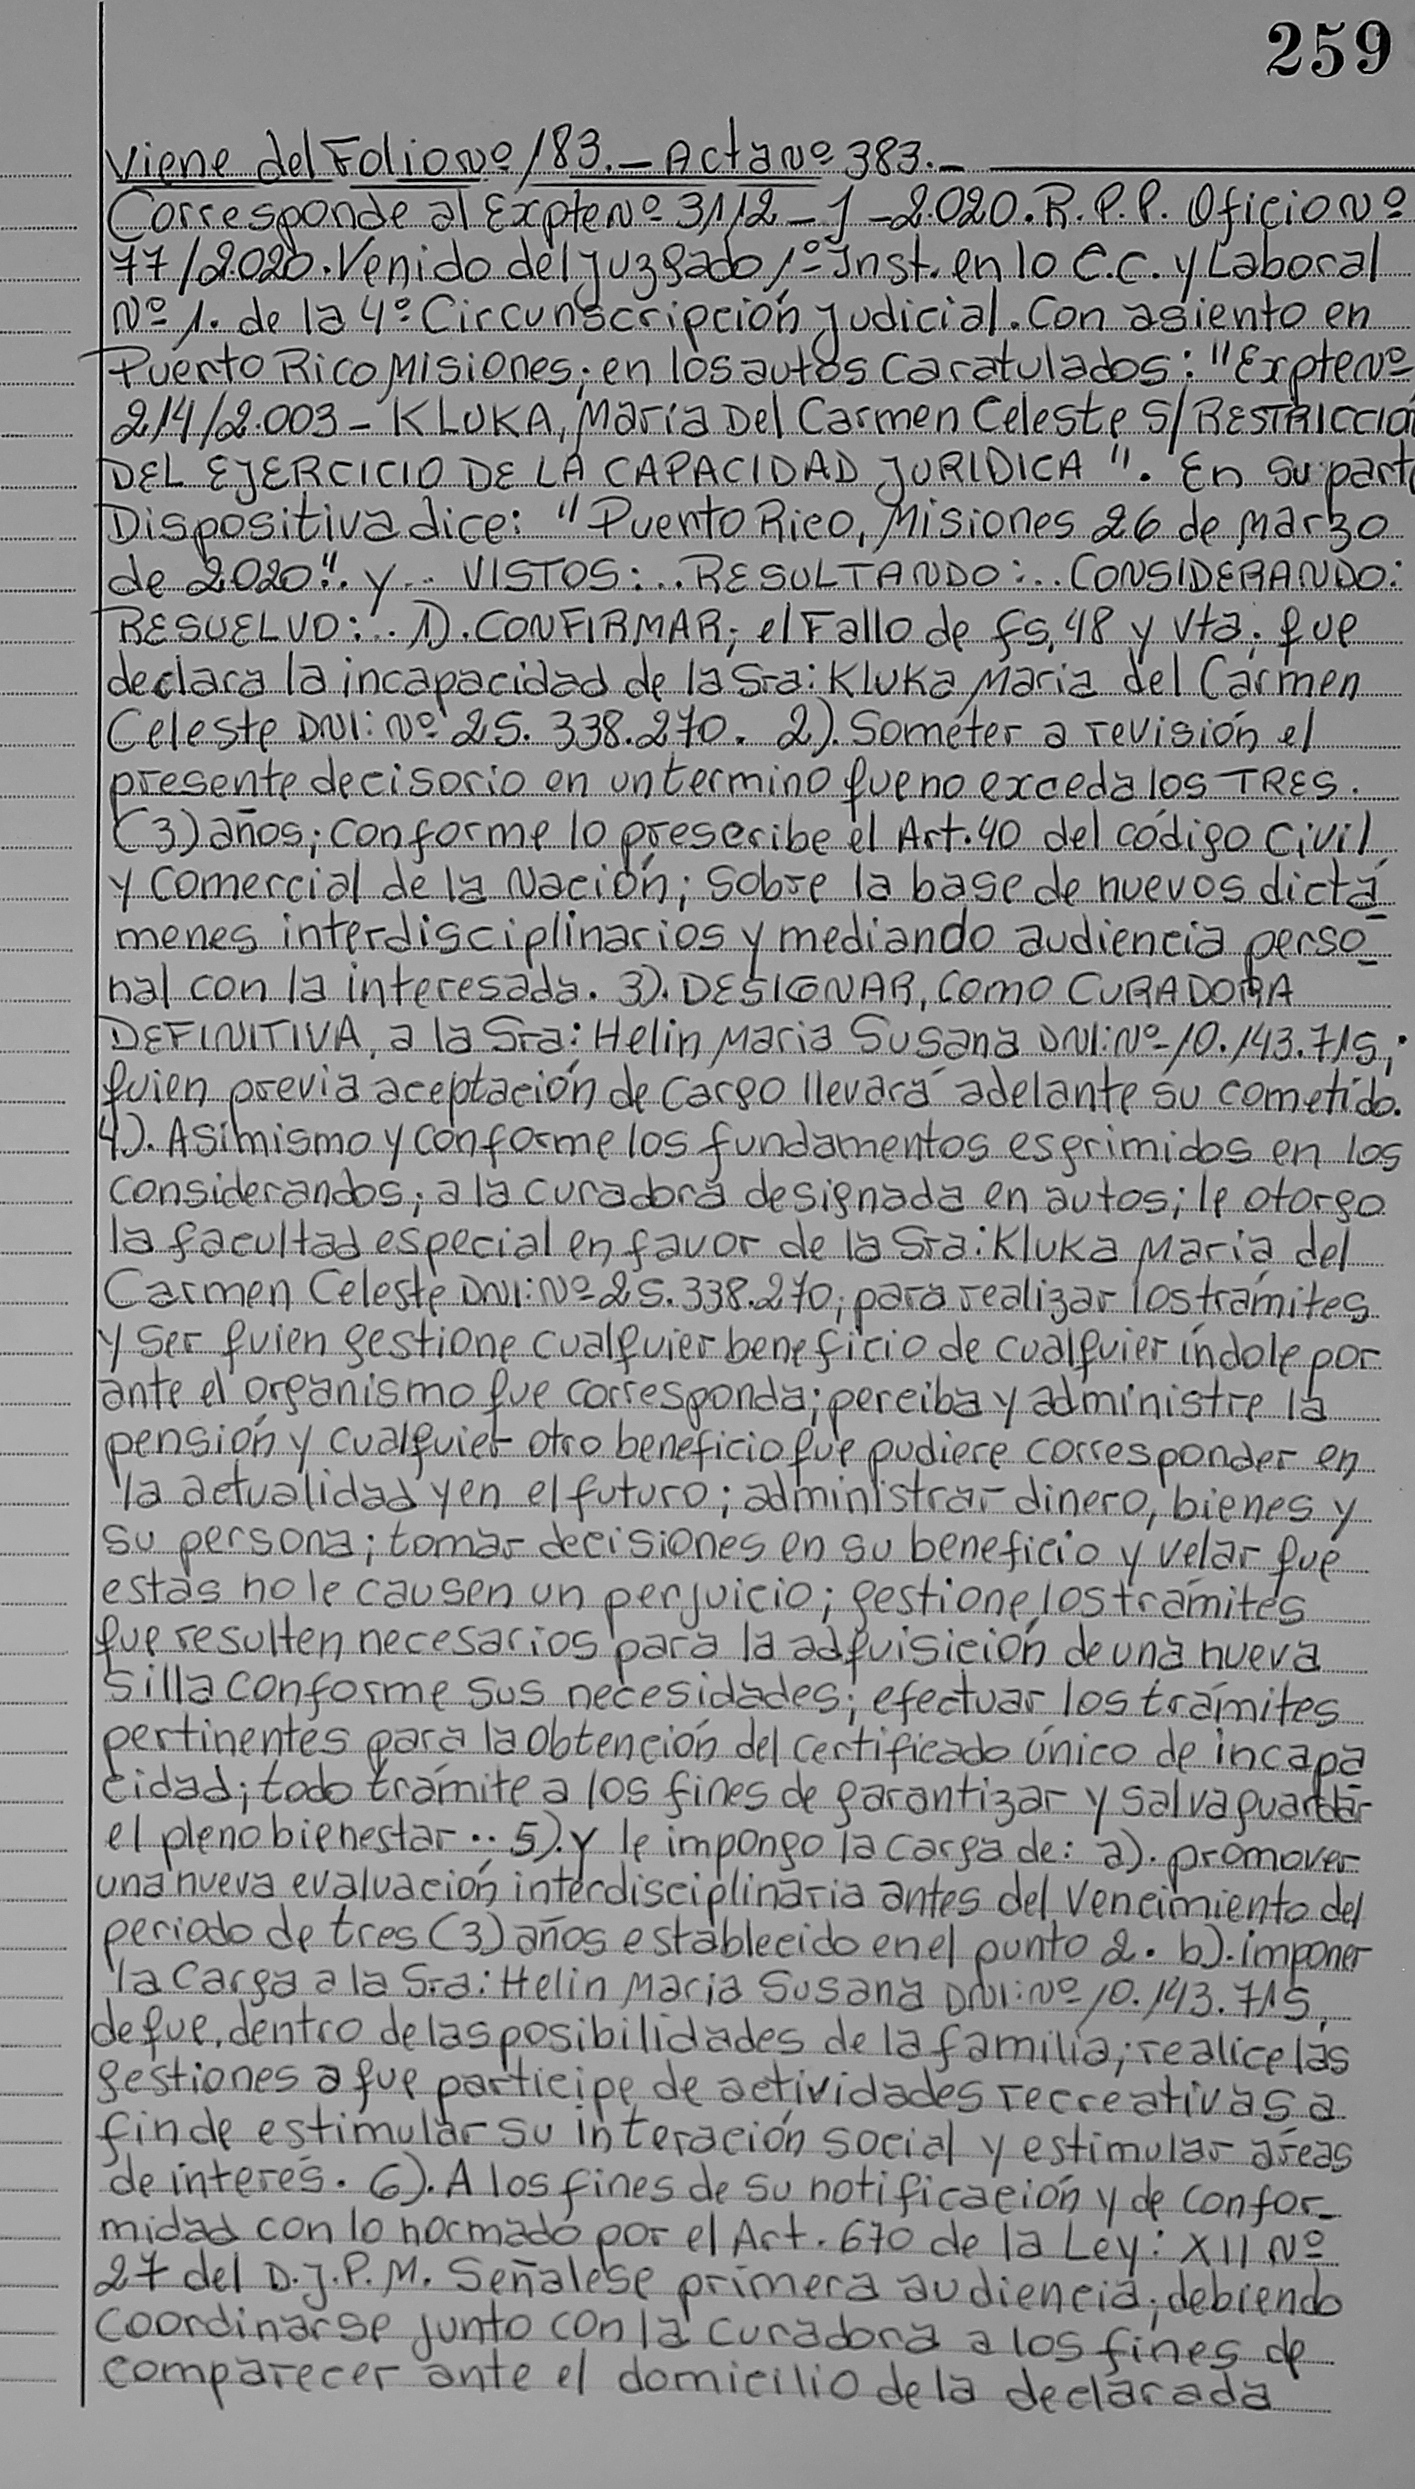 259
Viene del Folio Nº 183.- Acta Nº 383.-
Corresponde al Expte Nº 3112-J-2.020. R.P.P. Oficio Nº
77/2.020. Venido del Juzgado 1º Inst. en lo C.C. y Laboral
Nº 1. de la 4º Circunscripción Judicial. Con asiento en
Puerto Rico Misiones; en los autos Caratulados: "Expte Nº
214/2.003 - KLUKA, Maria Del Carmen Celeste S/ RESTRICCIÓN
DEL EJERCICIO DE LA CAPACIDAD JURIDICA". En su part
Dispositiva dice: "Puerto Rico, Misiones 26 de Marzo
de 2020". y... VISTOS:.. RESULTANDO:... CONSIDERANDO:
RESUELVO:.. 1). CONFIRMAR; el Fallo de fs, 48 y Vta; que
declara la incapacidad de la Sra: Kluka Maria del Carmen
Celeste DNI: Nº 25.338.270. 2). Someter a revisión el
presente decisorio en un termino que no exceda los TRES.
(3) años; conforme lo prescribe el Art. 40 del código Civil
y Comercial de la Nación; Sobre la base de nuevos dictá
menes interdisciplinarios y mediando audiencia perso_
nal con la interesada. 3). DESIGNAR, Como CURADORA
DEFINITIVA, a la Sra: Helin Maria Susana DNI: Nº 10.143.715;
quien previa aceptación de Cargo llevará adelante su cometido.
4). Asimismo y conforme los fundamentos esgrimidos en los
Considerandos; a la curadora designada en autos; le otorgo
la facultad especial en favor de la Sra: Kluka Maria del
Carmen Celeste DNI: Nº 25.338.270; para realizar los trámites
y Ser quien gestione cualquier beneficio de cualquier índole por
ante el organismo que corresponda; perciba y administre la
pensión y cualquier otro beneficio que pudiere corresponder en
la actualidad y en el futuro; administrar dinero, bienes y
su persona; tomar decisiones en su beneficio y velar que
estas no le causen un perjuicio; gestione los trámites
que resulten necesarios para la adquisición de una nueva
Silla conforme sus necesidades; efectuar los trámites
pertinentes para la Obtención del certificado único de incapa
cidad; todo trámite a los fines de garantizar y salvaguardar
el pleno bienestar.. 5). y le impongo la carga de: a). promover
una nueva evaluación interdisciplinaria antes del Vencimiento del
periodo de tres (3) años establecido en el punto 2. b). imponer
la Carga a la Sra: Helin Maria Susana DNI: Nº 10.143.715,
de que, dentro de las posibilidades de la familia; realice las
gestiones a que participe de actividades recreativas a
fin de estimular su interación social y estimular áreas
de interés. 6). A los fines de su notificación y de confor_
midad con lo normado por el Art. 670 de la Ley: XII Nº
27 del D.J.P.M. Señálese primera audiencia; debiendo
coordinarse junto con la curadora a los fines de
comparecer ante el domicilio de la declarada